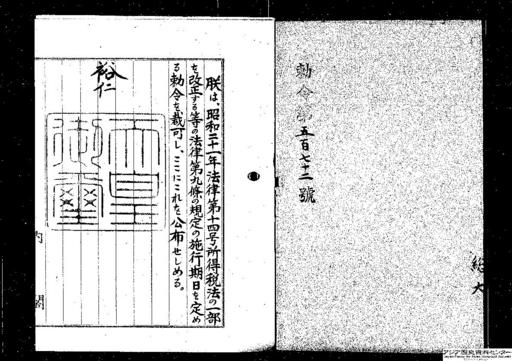 勅令第五百七十二號
朕は、昭和二十一年法律第十四号所得税法の一部
を改正する等の法律第九條の規定の施行期日を定め
る勅令を裁可し、ここにこれを公布せしめる。
裕仁
天皇
御璽
内閣
アジア歴史資料センター